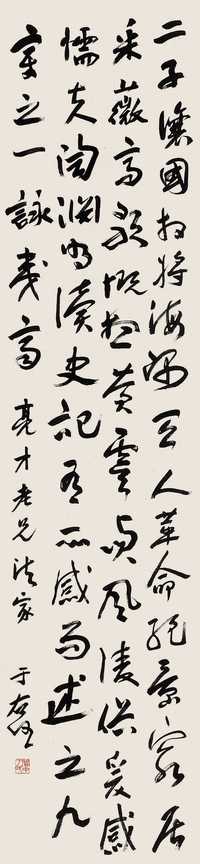 二子讓國相將海隅天人革命絕景窮居
采薇高歌慨想黃虞貞風凌俗爰感
懦夫陶淵明讀史記有所感而述之九
章之一詠夷齊 亮才老兄法家 于右任